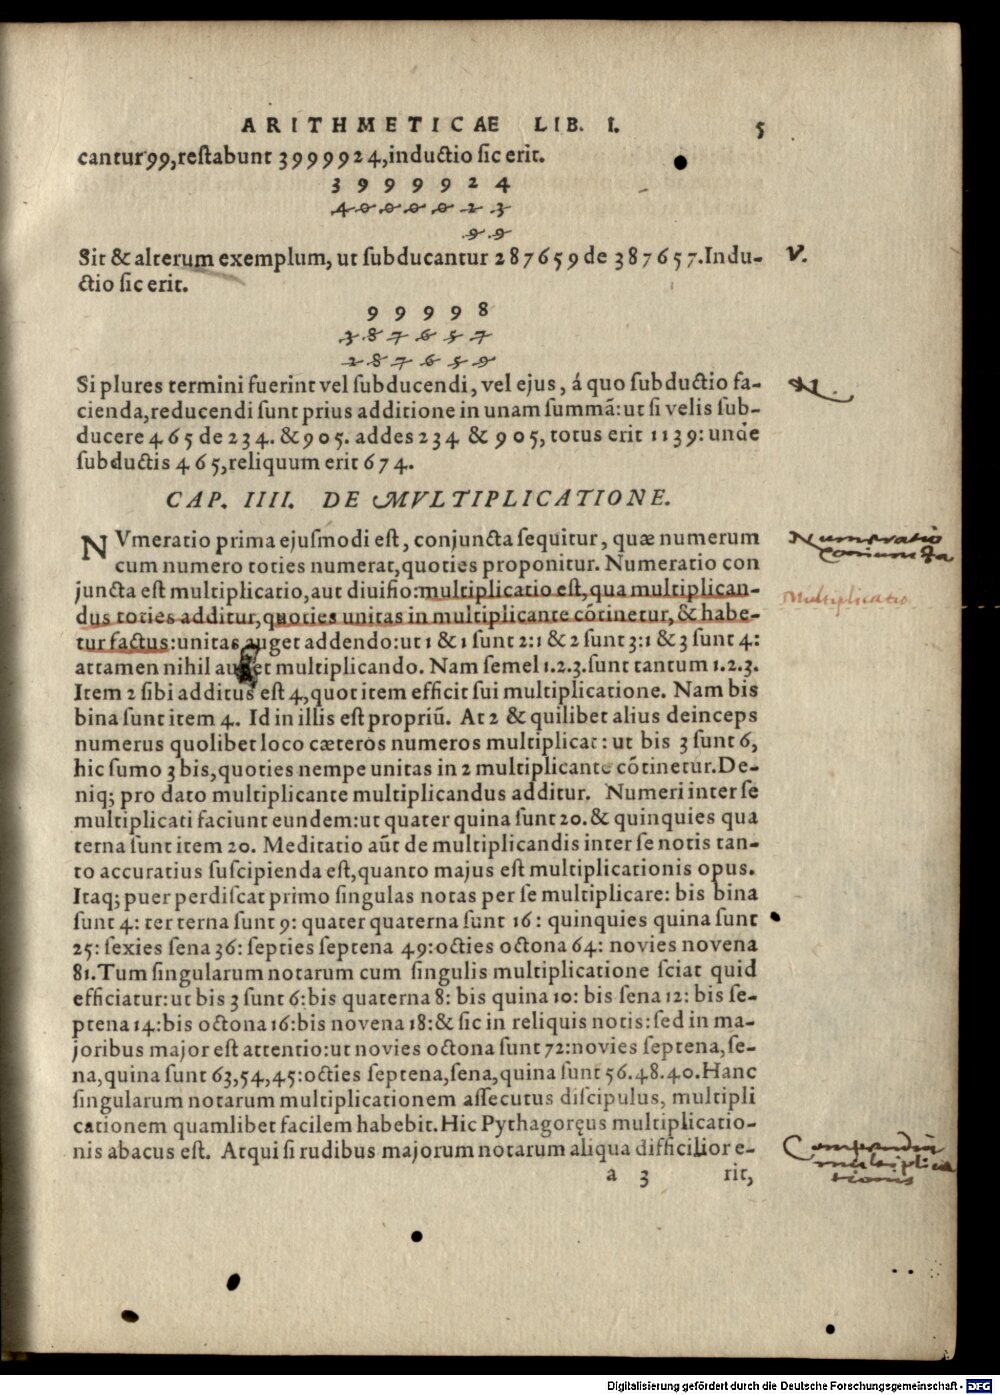 ARITHMETICAE LIB. I. 5
cantur 99, restabunt 3999924, inductio sic erit.
3 9 9 9 9 2 4
4 0 0 0 0 2 3
9 9
Sit & alterum exemplum, ut subducantur 287659 de 387657. Indu-
V.
ctio sic erit.
9 9 9 9 8
3 8 7 6 5 7
2 8 7 6 5 9
Si plures termini fuerint vel subducendi, vel ejus, á quo subductio fa-
cienda, reducendi sunt prius additione in unam summã: ut si velis sub-
ducere 465 de 234. & 905. addes 234 & 905, totus erit 1139: unde
subductis 465, reliquum erit 674.
CAP. IIII. DE MVLTIPLICATIONE.
NVmeratio prima ejusmodi est, conjuncta sequitur, quæ numerum
Numeratio
coniuncta
cum numero toties numerat, quoties proponitur. Numeratio con
juncta est multiplicatio, aut divisio: multiplicatio est, qua multiplican-
Multiplicatio
dus toties additur, quoties unitas in multiplicante cõtinetur, & habe-
tur factus: unitas auget addendo: ut 1 & 1 sunt 2: 1 & 2 sunt 3: 1 & 3 sunt 4:
attamen nihil auget multiplicando. Nam semel 1.2.3. sunt tantum 1.2.3.
Item 2 sibi additus est 4, quot item efficit sui multiplicatione. Nam bis
bina sunt item 4. Id in illis est propriũ. At 2 & quilibet alius deinceps
numerus quolibet loco cæteros numeros multiplicat: ut bis 3 sunt 6,
hic sumo 3 bis, quoties nempe unitas in 2 multiplicante cõtinetur. De-
niq; pro dato multiplicante multiplicandus additur. Numeri inter se
multiplicati faciunt eundem: ut quater quina sunt 20. & quinquies qua
terna sunt item 20. Meditatio aũt de multiplicandis inter se notis tan-
to accuratius suscipienda est, quanto majus est multiplicationis opus.
Itaq; puer perdiscat primo singulas notas per se multiplicare: bis bina
sunt 4: ter terna sunt 9: quater quaterna sunt 16: quinquies quina sunt
25: sexies sena 36: septies septena 49: octies octona 64: novies novena
81. Tum singularum notarum cum singulis multiplicatione sciat quid
efficiatur: ut bis 3 sunt 6: bis quaterna 8: bis quina 10: bis sena 12: bis se-
ptena 14: bis octona 16: bis novena 18: & sic in reliquis notis: sed in ma-
joribus major est attentio: ut novies octona sunt 72: novies septena, se-
na, quina sunt 63, 54, 45: octies septena, sena, quina sunt 56. 48. 40. Hanc
singularum notarum multiplicationem assecutus discipulus, multipli
cationem quamlibet facilem habebit. Hic Pythagoręus multiplicatio-
nis abacus est. Atqui si rudibus majorum notarum aliqua difficilior e-
Compendium
multiplica
tionis
a 3 rit,
Digitalisierung gefördert durch die Deutsche Forschungsgemeinschaft - DFG